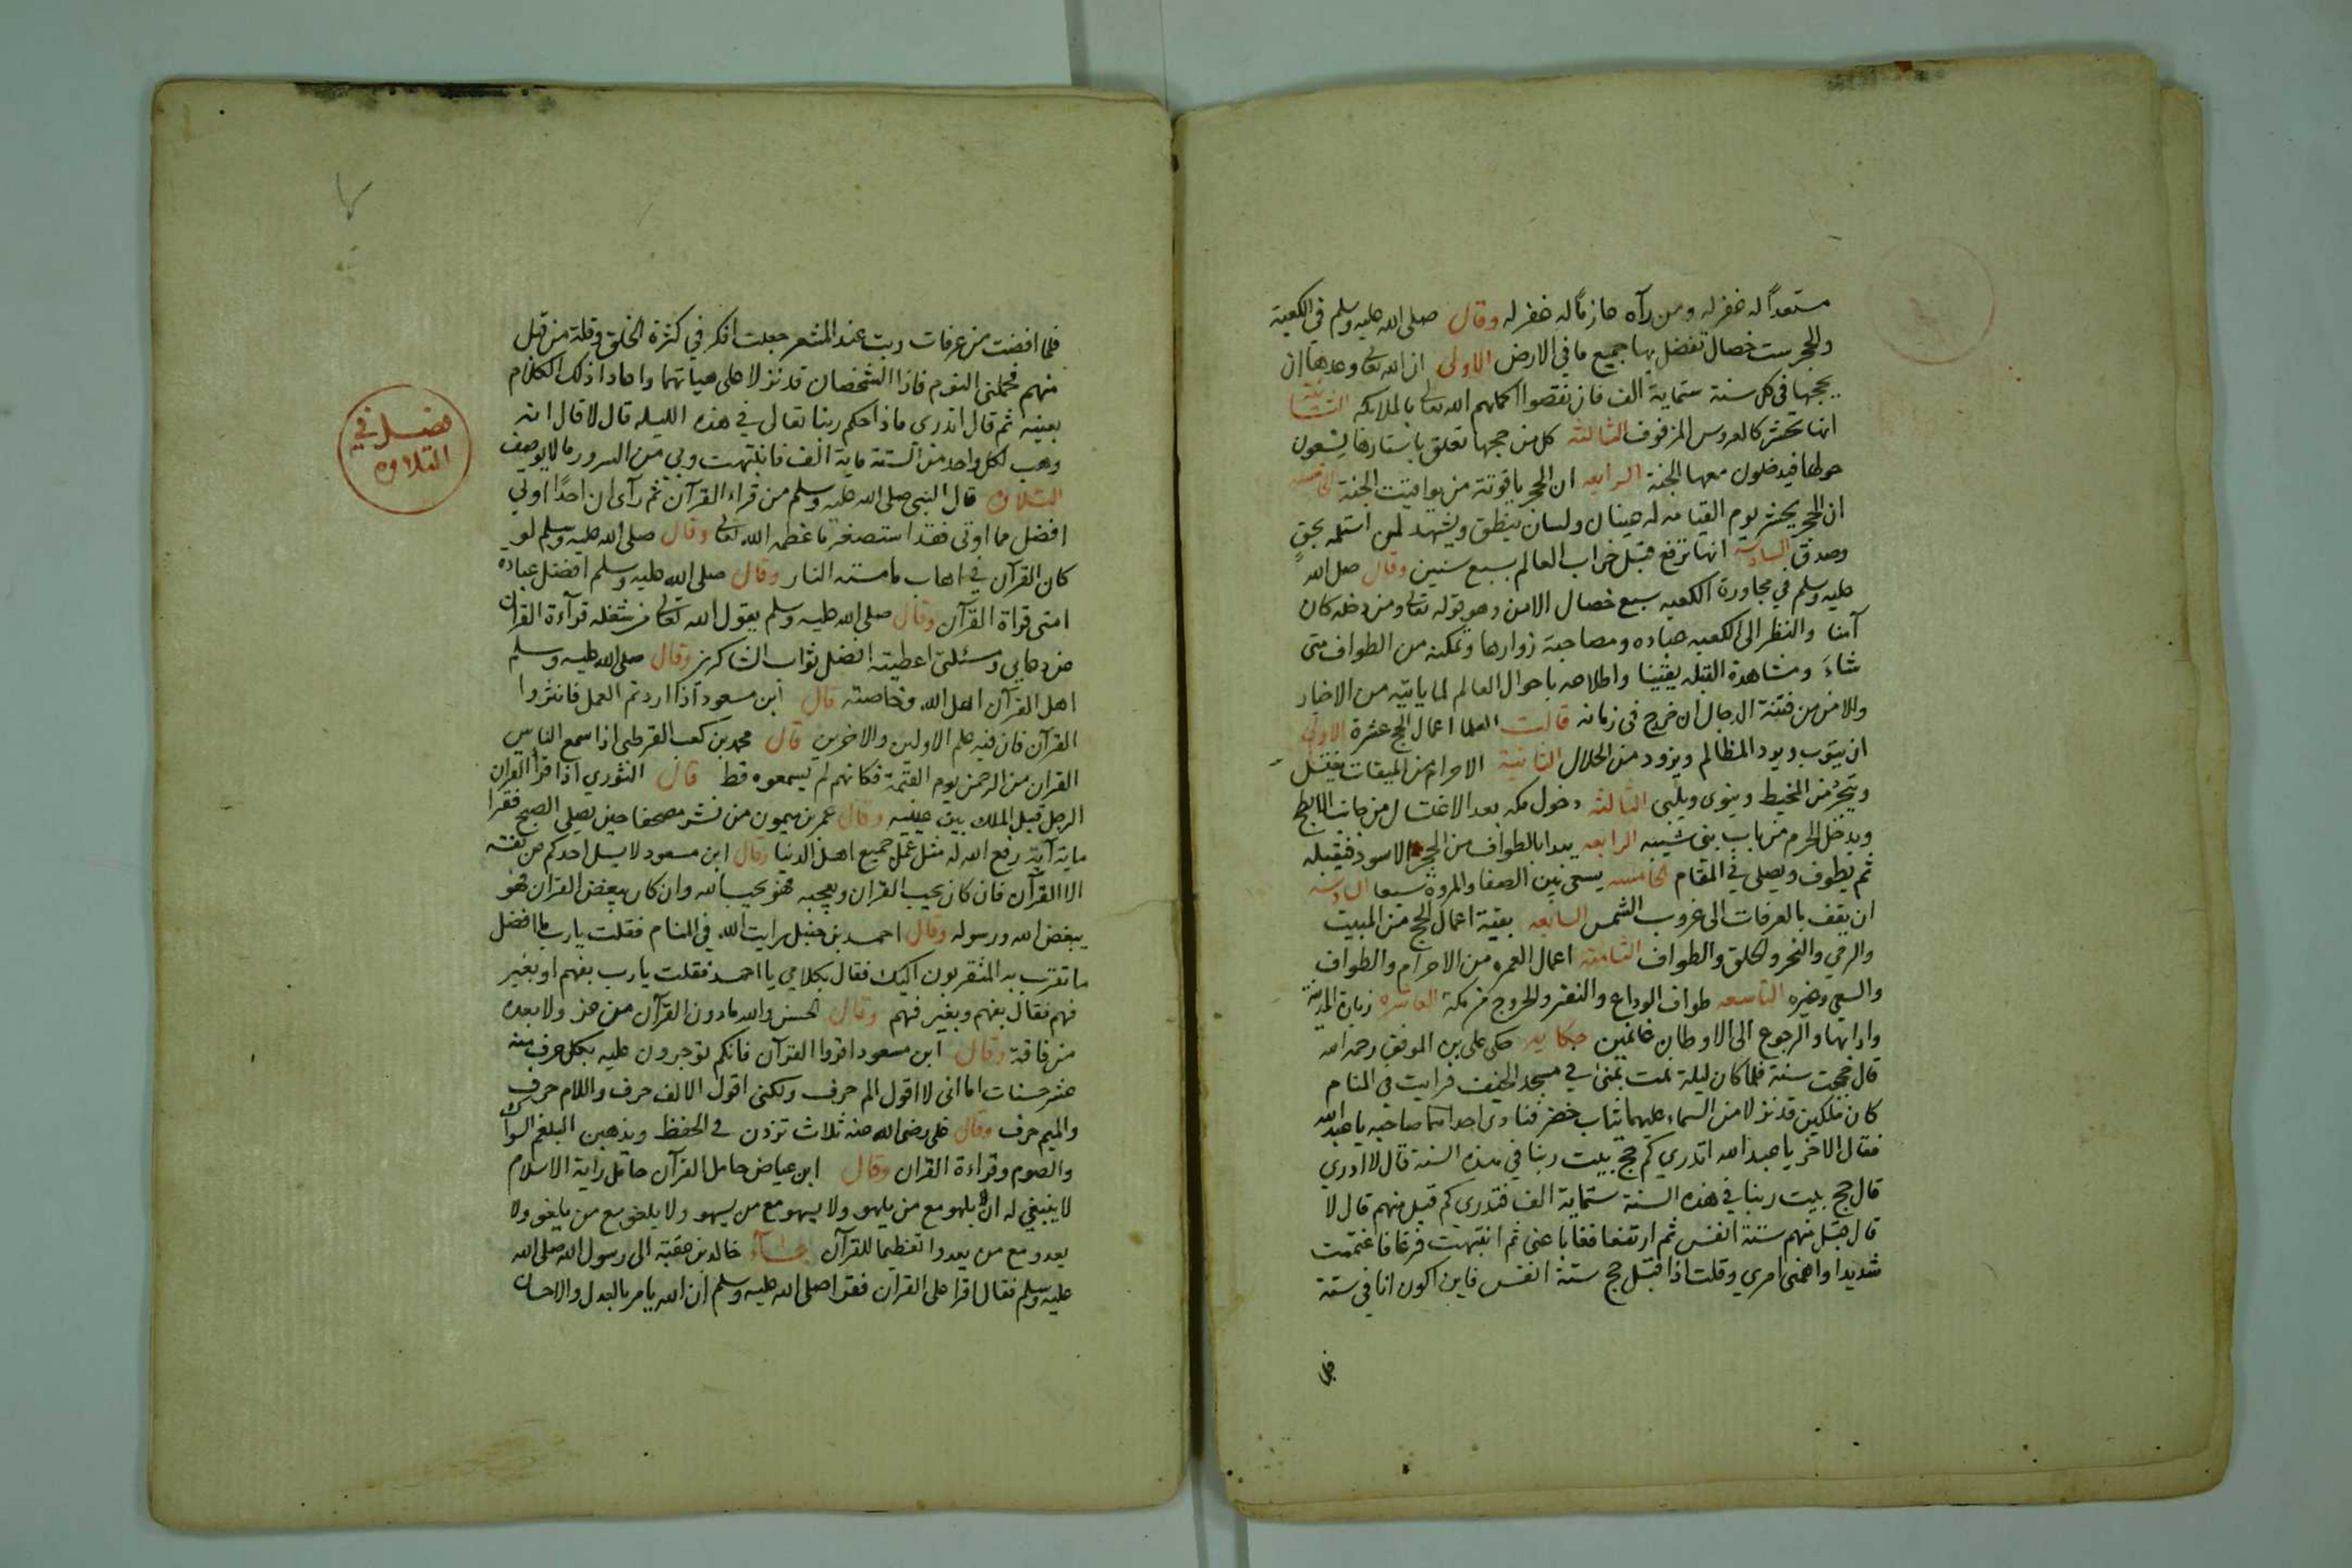 مستعداً له غفر له ومن رآه عازماً له غفر له وقال صلى الله عليه وسلم في الكعبة
والحجر ست خصال تفضل بها جميع ما في الارض الاولى ان الله تعالى وعدها ان
يحجها في كل سنة ستماية الف فان نقصوا اكملهم الله تعالى بالملايكه الثانية
انها تحشر كالعروس المزفوف الثالثه كل من حجها تعلق باستارها يسعون
حولها فيدخلون معها الجنة الرابعه ان الحجر ياقوتة من يواقيت الجنة الخامسه
ان الحجر يحشر يوم القيامه له عينان ولسان ينطق ويشهد لمن استلمه بحقٍ
وصدق السادسه انها ترفع قبل خراب العالم بسبع سنين وقال صلى الله
عليه وسلم في مجاورة الكعبه سبع خصال الامن وهو قوله تعالى ومن دخله كان
آمنا والنظر الى الكعبه عباده ومصاحبة زوارها وتمكنه من الطواف متى
شاءَ ومشاهدة القبله يقينا واطلاعه باحوال العالم لما ياتيه من الاخبار
والامن من فتنة الدجال ان خرج في زمانه قالت العلما اعمال الحج عشرة الاولى
ان يتوب ويرد المظالم ويزود من الحلال الثانية الاحرام من الميقات يغتسل
ويتجرد من المخيط وينوى ويلبى الثالثه دخول مكه بعد الاغتسال من جانب الابطح
ويدخل الحرم من باب بنى شيبه الرابعه يبدا بالطواف من الحجر الاسود فيقبله
ثم يطوف ويصلي في المقام الخامسه يسعى بين الصفا والمروة سبعا السادسه
ان يقف بالعرفات الى غروب الشمس السابعه بقية اعمال الحج من المبيت
والرمي والنحر والحلق والطواف الثامنة اعمال العمره من الاحرام والطواف
والسعي وغيره التاسعه طواف الوداع والنفر والخروج من مكة العاشره زيارة المدينة
وادابها والرجوع الى الاوطان غانمين حكايه حكى على بن الموفق رحمه الله
قال حججت سنة فلما كان ليلة نمت بمنى في مسجد الخيف فرايت في المنام
كان ملكين قد نزلا من السماء عليهما ثياب خضر فنادى احدهما صاحبه يا عبد الله
فقال الاخر يا عبد الله اتدري كم حج بيت ربنا في هذه السنة قال لا ادري
قال حج بيت ربنا في هذه السنة ستماية الف فتدرى كم قبل منهم قال لا
قال قبل منهم ستة انفس ثم ارتفعا فغابا عنى ثم انتبهت فزعا فاغتممت
شديدا واهمنى امري وقلت اذا قبل حج ستة انفس فاين اكون انا في ستة
فلما
فلما افضت من عرفات وبت عند المشعر جعلت افكر في كثرة الخلق وقلة من قبل
منهم فحملنى النوم فاذا الشخصان قد نزلا على هياتهما واعادا ذلك الكلام
بعينه ثم قال اتدرى ماذا حكم ربنا تعالى في هذه الليله قال لا قال انه
وهب لكل واحد من الستة ماية الف فانتبهت وبي من السرور ما لا يوصف
فصل في
التلاوه
التلاوه قال النبي صلى الله عليه وسلم من قراء القرآن ثم رآى ان احدًا اوتي
افضل مما اوتى فقد استصغر ما عظمه الله تعالى وقال صلى الله عليه وسلم لو
كان القرآن في اهاب ما مسته النار وقال صلى الله عليه وسلم افضل عبادة
امتى قراة القرآن وقال صلى الله عليه وسلم يقول الله تعالى من شغله قرآءة القران
عن دعايي ومسئلتى اعطيته افضل ثواب الشاكرين وقال صلى الله عليه وسلم
اهل القرآن اهل الله وخاصته قال ابن مسعود اذا اردتم العمل فانثروا
القرآن فان فيه علم الاولين والاخرين قال محمد بن كعب القرطبى اذا سمع الناس
القران من الرحمن يوم القيمة فكانهم لم يسمعوه قط قال الثوري اذا قرا القران
الرجل قبل الملك بين عينيه وقال عمر بن ميمون من نشر مصحفا حين يصلي الصبح فقرا
ماية آية رفع الله له مثل عمل جميع اهل الدنيا وقال ابن مسعود لا يسل احدكم عن نفسه
الا القرآن فان كان يحب القران ويعجبه فهو يحب الله وان كان يبغض القران فهو
يبغض الله ورسوله وقال احمد بن حنبل رايت الله في المنام فقلت يارب ما افضل
ما تقرب به المتقربون اليك فقال بكلامي يا احمد فقلت يا رب بفهم او بغير
فهم فقال بفهم وبغير فهم وقال الحسن والله ما دون القرآن من غنى ولا بعده
من فاقة وقال ابن مسعود اقروا القرآن فانكم توجرون عليه بكل حرف منه
عشر حسنات اما انى لا اقول الم حرف ولكنى اقول الالف حرف واللام حرف
والميم حرف وقال على رضى الله عنه ثلاث تزدن في الحفظ ويذهبن البلغم السواك
والصوم وقراءة القران وقال ابن عياض حامل القرآن حامل راية الاسلام
لا ينبغي له ان يلهو مع من يلهو ولا يسهو مع من يسهو ولا يلغو مع من يلغو ولا
يعدو مع من يعدوا تعظيما للقرآن جآء خالد بن عقبة الى رسول الله صلى الله
عليه وسلم فقال اقرا على القران فقرا صلى الله عليه وسلم ان الله يامر بالعدل والاحسان